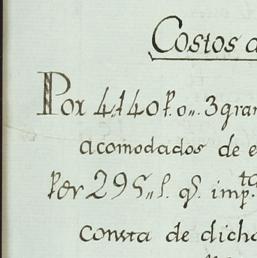 Costos
Por 4140 P. o,,. 3 gran
acomodados de e
Per 295,, P. q̃. imp.ta
Consta de dicho